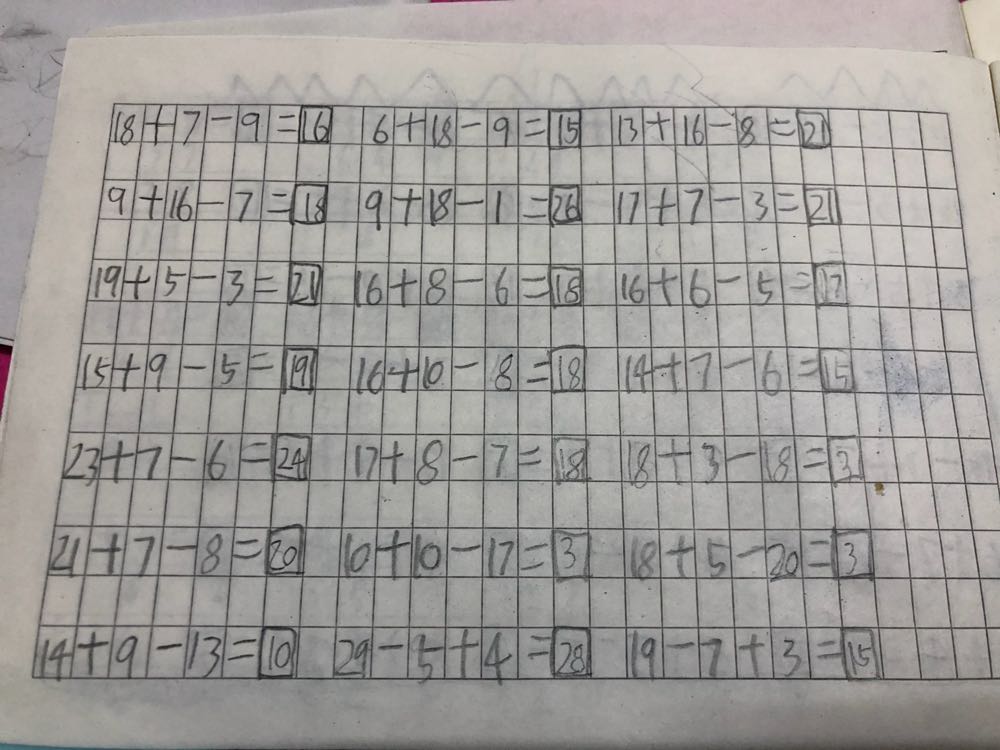 18+7-9=16 6+18-9=15 13+16-8=21
9+16-7=18 9+18-1=26 17+7-3=21
19+5-3=21 16+8-6=18 16+6-5=17
15+9-5=19 16+10-8=18 14+7-6=15
23+7-6=24 17+8-7=18 18+3-18=3
21+7-8=20 10+10-17=3 18+5-20=3
14+9-13=10 29-5+4=28 19-7+3=15